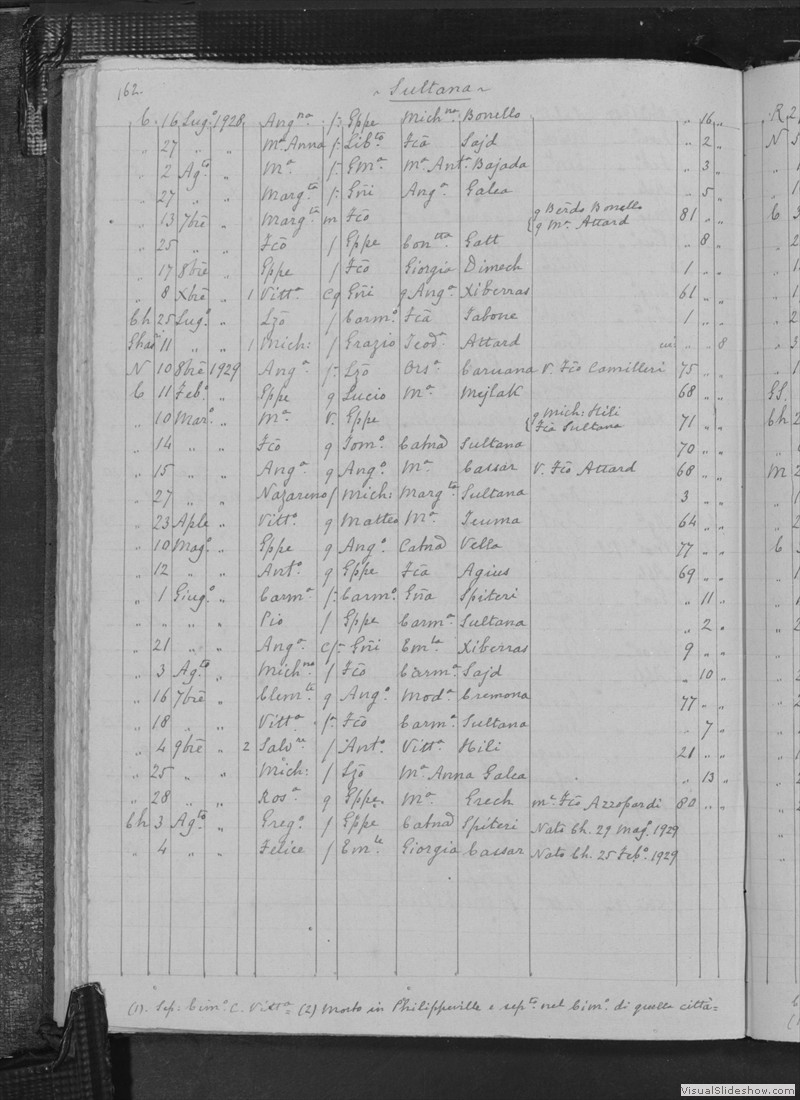 162. ~ Sultana ~
C. 16 Lug.º 1928 Ang.na f: Gppe Mich.na Bonello „ 16 „
„ 27 „ „ M.a Anna f: Lib.to Fcã Sajd „ 2 „
„ 2 Ag.to „ M.a f: Em.a M.a Ant.a Bajada „ 3 „
„ 27 „ „ Marg.ta f: Gñi Ang.a Galea „ 5 „
„ 13 7bre „ Marg.ta m Fcõ { q Berdo Bonello 81 „ „
q M.a Attard
„ 25 „ „ Fcõ f Gppe Con.tta Gatt „ 8 „
„ 17 8bre „ Gppe f Fcõ Giorgia Dimech 1 „ „
„ 8 Xbre „ 1 Vitt.a cq Gñi q Ang.a Xiberras 61 „ „
Ch 25 Lug.º „ Lzõ f Carm.º Fcã Tabone 1 „ „
Ghas 11 „ „ 1 Mich: f Grazio Teod.a Attard „ „ 8
N 10 8bre 1929 Ang.a f: Lzõ Ors.a Caruana V. Fcõ Camilleri 75 „ „
C 11 Feb.º „ Gppe q Lucio M.a Mejlak 68 „ „
„ 10 Mar.º „ M.a V. Gppe { q Mich: Hili 71 „ „
Fcã Sultana
„ 14 „ „ Fcõ q Tom.º Catnã Sultana 70 „ „
„ 15 „ „ Ang.a q Ang.º M.a Cassar V. Fcõ Attard 68 „ „
„ 27 „ „ Nazareno f Mich: Marg.ta Sultana 3 „ „
„ 23 Aple „ Vitt.º q Matteo M.a Teuma 64 „ „
„ 10 Mag.º „ Gppe q Ang.º Catnã Vella 77 „ „
„ 12 „ „ Ant.º q Gppe Fcã Agius 69 „ „
„ 1 Giug.º „ Carm.a f: Carm.º Gña Spiteri „ 11 „
„ „ „ „ Pio f Gppe Carm.a Sultana „ 2 „
„ 21 „ „ Ang.a c/f: Gñi Em.la Xiberras 9 „ „
„ 3 Ag.to „ Mich.no f Fcõ Carm.a Sajd „ 10 „
„ 16 7bre „ Clem.te q Ang.º Mod.a Cremona 77 „ „
„ 18 „ „ Vitt.a f: Fcõ Carm.a Sultana „ 7 „
„ 4 9bre „ 2 Salv.re f Ant.º Vitt.a Hili 21 „ „
„ 25 „ „ Mich: f Lzõ M.a Anna Galea „ 13 „
„ 28 „ „ Ros.a q Gppe M.a Grech m.e Fcõ Azzopardi 80 „ „
Ch 3 Ag.to „ Greg.º f Gppe Catnã Spiteri Nato Ch. 29 Mag.º 1929
„ 4 „ „ Felice f Em.le Giorgia Cassar Nato Ch. 25 Feb.º 1929
(1). Sep: Cim.º C. Vitt.a= (2) Morto in Philippeville e sep.to nel Cim.º di quella città=
VisualSlideshow.com